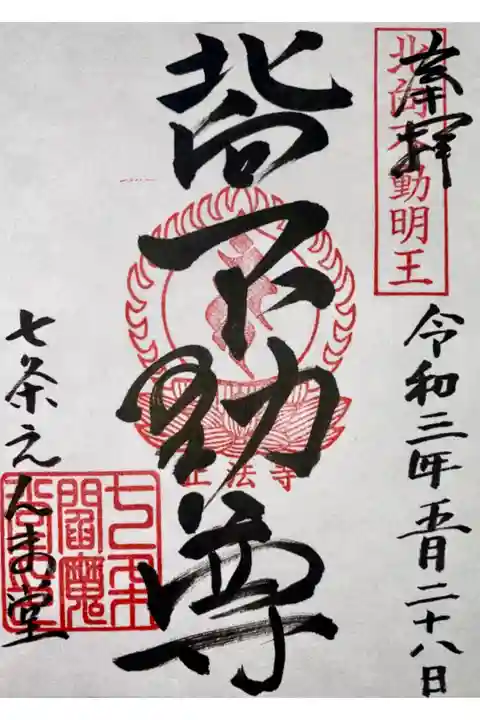 奉拝
北向不動明王
令和三年五月二十八日
北向不動尊
正法寺
七条えんま堂
七条
閻魔